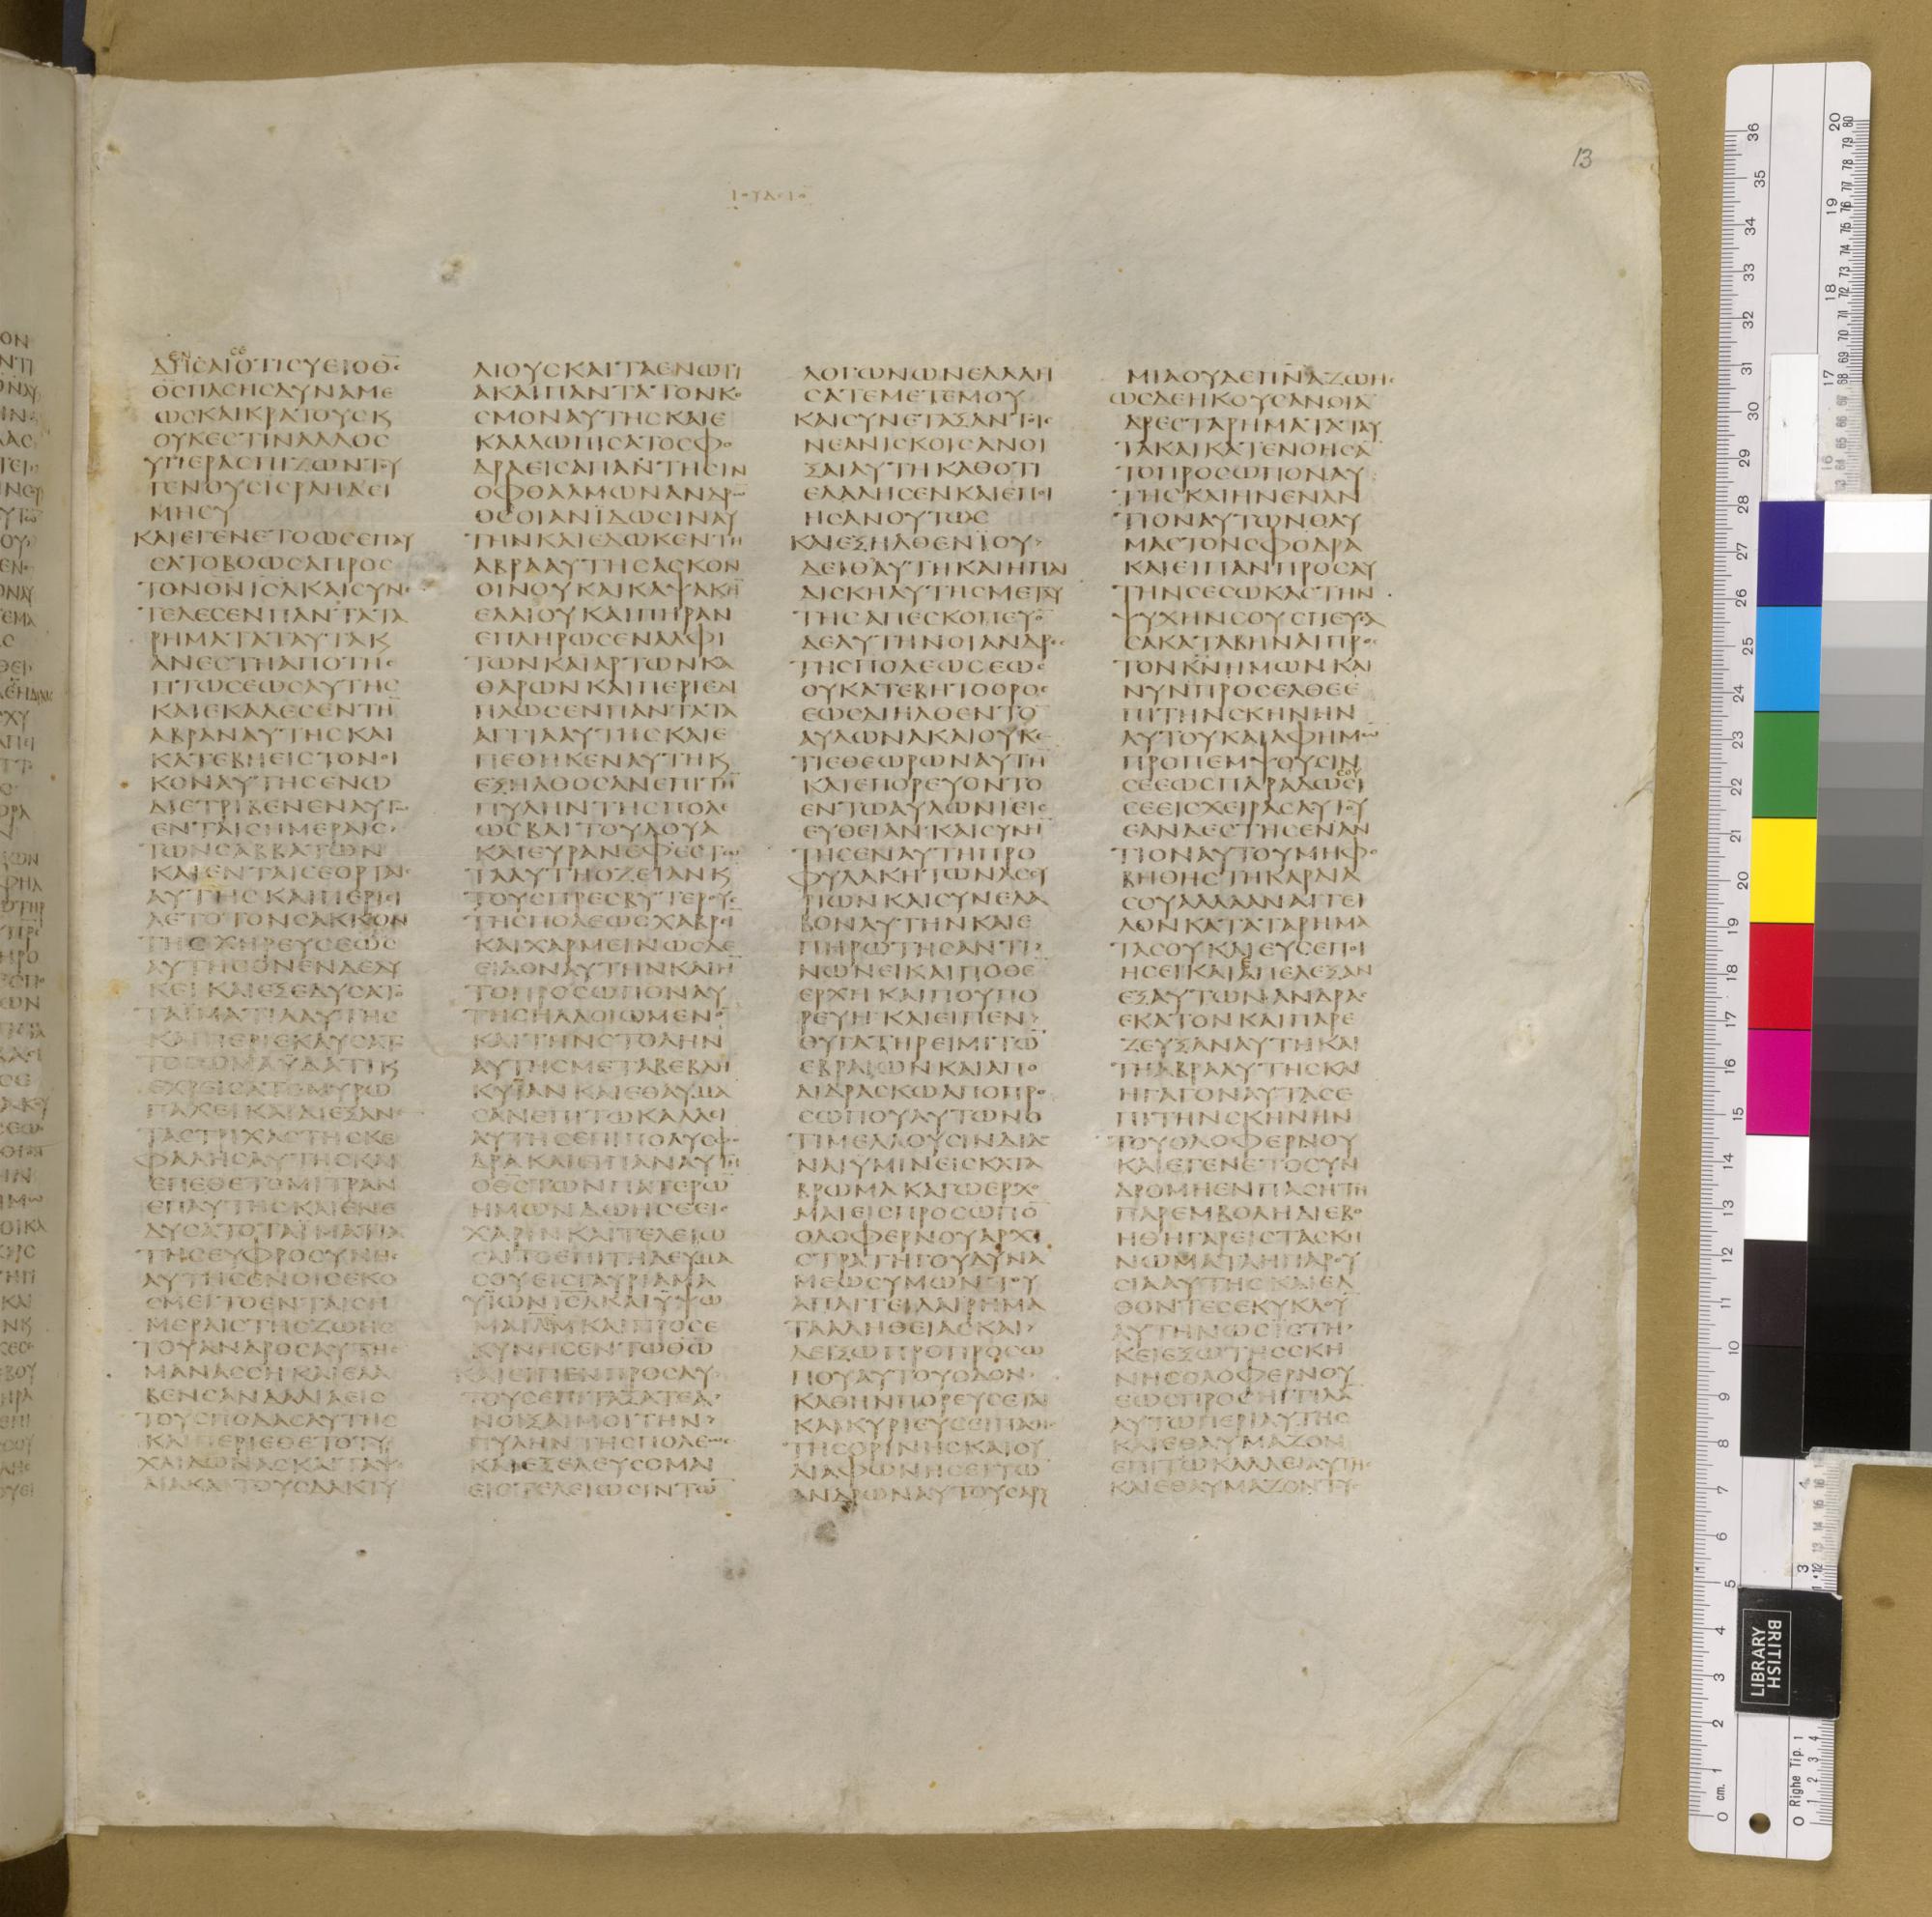 13
ΙΟΥΔΙΘ
ΟΣΠΑΣΗΣΔΥΝΑΜΕ
ΩΣΚΑΙΚΡΑΤΟΥΣΚ
ΟΥΚΕΣΤΙΝΑΛΛΟΣ
ΥΠΕΡΑΣΠΙΖΩΝΤΟΥ
ΓΕΝΟΥΣΙΣΡΑΗΛΕΙ
ΜΗΣΥ
ΚΑΙΕΓΕΝΕΤΟΩΣΕΠΑΥ
ΣΑΤΟΒΟΩΣΑΠΡΟΣ
ΤΟΝΘΝΙΣΛΚΑΙΣΥΝ
ΤΕΛΕΣΕΝΠΑΝΤΑΤΑ
ΡΗΜΑΤΑΤΑΥΤΑΚ
ΑΝΕΣΤΗΑΠΟΤΗΣ
ΠΤΩΣΕΩΣΑΥΤΗΣ
ΚΑΙΕΚΑΛΕΣΕΝΤΗ
ΑΒΡΑΝΑΥΤΗΣΚΑΙ
ΚΑΤΕΒΗΕΙΣΤΟΝΟΙ
ΚΟΝΑΥΤΗΣΕΝΩ
ΔΙΕΤΡΙΒΕΝΕΝΑΥΤΩ
ΕΝΤΑΙΣΗΜΕΡΑΙΣ
ΤΩΝΣΑΒΒΑΤΩΝ
ΚΑΙΕΝΤΑΙΣΕΟΡΤΑΙΣ
ΑΥΤΗΣΚΑΙΠΕΡΙΕΙ
ΛΕΤΟΤΟΝΣΑΚΚΟΝ
ΤΗΣΧΗΡΕΥΣΕΩΣ
ΑΥΤΗΣΟΝΕΝΔΕΔΥ
ΤΑΪΜΑΤΙΑΑΥΤΗΣ
ΚΑΙΠΕΡΙΕΚΛΥΣΑΤΟ
ΤΟΣΩΜΑΫΔΑΤΙΚ
ΕΧΡΕΙΣΑΤΟΜΥΡΩ
ΠΑΧΕΙΚΑΙΔΙΕΞΑΝΕ
ΤΑΣΤΡΙΧΑΣΤΗΣΚΕ
ΦΑΛΗΣΑΥΤΗΣΚΑΙ
ΕΠΕΘΕΤΟΜΙΤΡΑΝ
ΕΠΑΥΤΗΣΚΑΙΕΝΕ
ΔΥΣΑΤΟΤΑΪΜΑΤΙΑ
ΤΗΣΕΥΦΡΟΣΥΝΗΣ
ΑΥΤΗΣΕΝΟΙΣΕΚΟ
ΣΜΕΙΤΟΕΝΤΑΙΣΗ
ΜΕΡΑΙΣΤΗΣΖΩΗΣ
ΤΟΥΑΝΔΡΟΣΑΥΤΗΣ
ΜΑΝΑΣΣΗΚΑΙΕΛΑ
ΒΕΝΣΑΝΔΑΛΙΑΕΙΣ
ΤΟΥΣΠΟΔΑΣΑΥΤΗΣ
ΚΑΙΠΕΡΙΕΘΕΤΟΤΟΥ
ΧΛΙΔΩΝΑΣΚΑΙΤΑΨΕ
ΛΙΑΚΑΙΤΟΥΣΔΑΚΤΥ
ΛΙΟΥΣΚΑΙΤΑΕΝΩΤΙ
ΑΚΑΙΠΑΝΤΑΤΟΝΚΟ
ΣΜΟΝΑΥΤΗΣΚΑΙΕ
ΚΑΛΛΩΠΙΣΑΤΟΣΦΟ
ΔΡΑΕΙΣΑΠΑΝΤΗΣΙΝ
ΟΦΘΑΛΜΩΝΑΝΔΡΩ
ΤΗΝΚΑΙΕΔΩΚΕΝΤΗ
ΑΒΡΑΑΥΤΗΣΑΣΚΟΝ
ΟΙΝΟΥΚΑΙΚΑΨΑΚΗ
ΕΛΑΙΟΥΚΑΙΠΗΡΑΝ
ΕΠΛΗΡΩΣΕΝΑΛΦΙ
ΤΩΝΚΑΙΑΡΤΩΝΚΑ
ΘΑΡΩΝΚΑΙΠΕΡΙΕΝ
ΗΔΩΣΕΝΠΑΝΤΑΤΑ
ΑΓΓΙΑΑΥΤΗΣΚΑΙΕ
ΠΕΘΗΚΕΝΑΥΤΗΚ
ΕΞΗΛΘΟΣΑΝΕΠΙΤΗ
ΠΥΛΗΝΤΗΣΠΟΛΕ
ΩΣΒΑΙΤΟΥΛΟΥΑ
ΚΑΙΕΥΡΑΝΕΦΕΣΤΩ
ΤΑΑΥΤΗΟΖΕΙΑΝΚ
ΤΟΥΣΠΡΕΣΒΥΤΕΡΟΥΣ
ΤΗΣΠΟΛΕΩΣΧΑΒΡΕΙ
ΚΑΙΧΑΡΜΕΙΝΩΣΔΕ
ΕΙΔΟΝΑΥΤΗΝΚΑΙΗ
ΤΟΠΡΟΣΩΠΟΝΑΥ
ΤΗΣΗΛΛΟΙΩΜΕΝΟ
ΚΑΙΤΗΝΣΤΟΛΗΝ
ΑΥΤΗΣΜΕΤΑΒΕΒΛΗ
ΚΥΪΑΝΚΑΙΕΘΑΥΜΑ
ΣΑΝΕΠΙΤΩΚΑΛΛΕΙ
ΑΥΤΗΣΕΠΙΠΟΛΥΣΦΟ
ΔΡΑΚΑΙΕΙΠΑΝΑΥΤΗ
ΟΘΣΤΩΝΠΑΤΕΡΩ
ΗΜΩΝΔΩΗΣΕΕΙΣ
ΧΑΡΙΝΚΑΙΤΕΛΕΙΩ
ΣΑΙΤΟΕΠΙΤΗΔΕΥΜΑ
ΣΟΥΕΙΣΓΑΥΡΙΑΜΑ
ΥΪΩΝΙΣΛΚΑΙΫΨΩ
ΜΑΙΛΜΚΑΙΠΡΟΣΕ
ΚΥΝΗΣΕΝΤΩΘΩ
ΚΑΙΕΙΠΕΝΠΡΟΣΑΥ
ΤΟΥΣΕΠΙΤΑΞΑΤΕΑ
ΝΟΙΞΑΙΜΟΙΤΗΝ
ΠΥΛΗΝΤΗΣΠΟΛΕΩΣ
ΚΑΙΕΞΕΛΕΥΣΟΜΑΙ
ΕΙΣΤΕΛΕΙΩΣΙΝΤΩ
ΛΟΓΩΝΩΝΕΛΑΛΗ
ΣΑΤΕΜΕΤΕΜΟΥ
ΚΑΙΣΥΝΕΤΑΞΑΝΤΟΙΣ
ΝΕΑΝΙΣΚΟΙΣΑΝΟΙ
ΞΑΙΑΥΤΗΚΑΘΟΤΙ
ΕΛΑΛΗΣΕΝΚΑΙΕΠΟΙ
ΗΣΑΝΟΥΤΩΣ
ΚΑΙΕΞΗΛΘΕΝΪΟΥ
ΔΕΙΘΑΥΤΗΚΑΙΗΠΑΙ
ΔΙΣΚΗΑΥΤΗΣΜΕΤΑΥ
ΤΗΣΑΠΕΣΚΟΠΕΥΟ
ΔΕΑΥΤΗΝΟΙΑΝΔΡΕΣ
ΤΗΣΠΟΛΕΩΣΕΩΣ
ΟΥΚΑΤΕΒΗΤΟΟΡΟΣ
ΕΩΣΔΙΗΛΘΕΝΤΟ
ΑΥΛΩΝΑΚΑΙΟΥΚΕ
ΤΙΕΘΕΩΡΩΝΑΥΤΗ
ΚΑΙΕΠΟΡΕΥΟΝΤΟ
ΕΝΤΩΑΥΛΩΝΙΕΙΣ
ΕΥΘΕΙΑΝΚΑΙΣΥΝΗ
ΤΗΣΕΝΑΥΤΗΠΡΟ
ΦΥΛΑΚΗΤΩΝΑΣΣΥ
ΡΙΩΝΚΑΙΣΥΝΕΛΑ
ΒΟΝΑΥΤΗΝΚΑΙΕ
ΠΗΡΩΤΗΣΑΝΤΙ
ΝΩΝΕΙΚΑΙΠΟΘΕ
ΕΡΧΗΚΑΙΠΟΥΠΟ
ΡΕΥΗΚΑΙΕΙΠΕΝ
ΘΥΓΑΤΗΡΕΙΜΙΤΩ
ΕΒΡΑΙΩΝΚΑΙΑΠΟ
ΔΙΔΡΑΣΚΩΑΠΟΠΡΟ
ΣΩΠΟΥΑΥΤΩΝΟ
ΤΙΜΕΛΛΟΥΣΙΝΔΙΔΟ
ΝΑΙΥΜΙΝΕΙΣΚΑΤΑ
ΒΡΩΜΑΚΑΓΩΕΡΧΟ
ΜΑΙΕΙΣΠΡΟΣΩΠΟ
ΟΛΟΦΕΡΝΟΥΑΡΧΙ
ΣΤΡΑΤΗΓΟΥΔΥΝΑ
ΜΕΩΣΥΜΩΝΤΟΥ
ΑΠΑΓΓΕΙΛΑΙΡΗΜΑ
ΤΑΑΛΗΘΕΙΑΣΚΑΙ
ΔΕΙΞΩΠΡΟΠΡΟΣΩ
ΠΟΥΑΥΤΟΥΟΔΟΝ
ΚΑΘΗΝΠΟΡΕΥΣΕΤΑΙ
ΚΑΙΚΥΡΙΕΥΣΕΙΠΑΣΗΣ
ΤΗΣΟΡΙΝΗΣΚΑΙΟΥ
ΔΙΑΦΩΝΗΣΕΙΤΩ
ΑΝΔΡΩΝΑΥΤΟΥΣΑΡΞ
ΜΙΑΟΥΔΕΠΝΑΖΩΗΣ
ΩΣΔΕΗΚΟΥΣΑΝΟΙΑ
ΔΡΕΣΤΑΡΗΜΑΤΑΤΑΥ
ΤΑΚΑΙΚΑΤΕΝΟΗΣΑ
ΤΟΠΡΟΣΩΠΟΝΑΥ
ΤΗΣΚΑΙΗΝΕΝΑΝ
ΤΙΟΝΑΥΤΩΝΘΑΥ
ΜΑΣΤΟΝΣΦΟΔΡΑ
ΚΑΙΕΙΠΑΝΠΡΟΣΑΥ
ΤΗΝΣΕΣΩΚΑΣΤΗΝ
ΨΥΧΗΝΣΟΥΣΠΕΥΣΑ
ΣΑΚΑΤΑΒΗΝΑΙΠΡΟΣ
ΤΟΝΚΝΗΜΩΝΚΑΙ
ΝΥΝΠΡΟΣΕΛΘΕΕ
ΠΙΤΗΝΣΚΗΝΗΝ
ΑΥΤΟΥΚΑΙΑΦΗΜΩ
ΠΡΟΠΕΜΨΟΥΣΙΝ
ΣΕΕΩΣΠΑΡΑΔΩΣΙ
ΣΕΕΙΣΧΕΙΡΑΣΑΥΤΟΥ
ΕΑΝΔΕΣΤΗΣΕΝΑΝ
ΤΙΟΝΑΥΤΟΥΜΗΦΟ
ΒΗΘΗΣΤΗΚΑΡΔΙΑ
ΣΟΥΑΛΛΑΑΝΑΓΓΕΙ
ΛΟΝΚΑΤΑΤΑΡΗΜΑ
ΤΑΣΟΥΚΑΙΕΥΣΕΠΟΙ
ΗΣΕΙΚΑΙΑΠΕΛΕΞΑΝ
ΕΞΑΥΤΩΝΑΝΔΡΑΣ
ΕΚΑΤΟΝΚΑΙΠΑΡΕ
ΖΕΥΞΑΝΑΥΤΗΚΑΙ
ΤΗΑΒΡΑΑΥΤΗΣΚΑΙ
ΗΓΑΓΟΝΑΥΤΑΣΕ
ΠΙΤΗΝΣΚΗΝΗΝ
ΤΟΥΟΛΟΦΕΡΝΟΥ
ΚΑΙΕΓΕΝΕΤΟΣΥΝ
ΔΡΟΜΗΕΝΠΑΣΗΤΗ
ΠΑΡΕΜΒΟΛΗΔΙΕΒΟ
ΗΘΗΓΑΡΕΙΣΤΑΣΚΗ
ΝΩΜΑΤΑΗΠΑΡΟΥ
ΣΙΑΑΥΤΗΣΚΑΙΕΛ
ΘΟΝΤΕΣΕΚΥΚΛΟΥ
ΑΥΤΗΝΩΣΪΣΤΗ
ΚΕΙΕΞΩΤΗΣΣΚΗ
ΝΗΣΟΛΟΦΕΡΝΟΥ
ΕΩΣΠΡΟΣΗΓΓΙΛΑ
ΑΥΤΩΠΕΡΙΑΥΤΗΣ
ΚΑΙΕΘΑΥΜΑΖΟΝ
ΕΠΙΤΩΚΑΛΛΕΙΑΥΤΗΣ
ΚΑΙΕΘΑΥΜΑΖΟΝΤΟΥ
BRITISH
LIBRARY